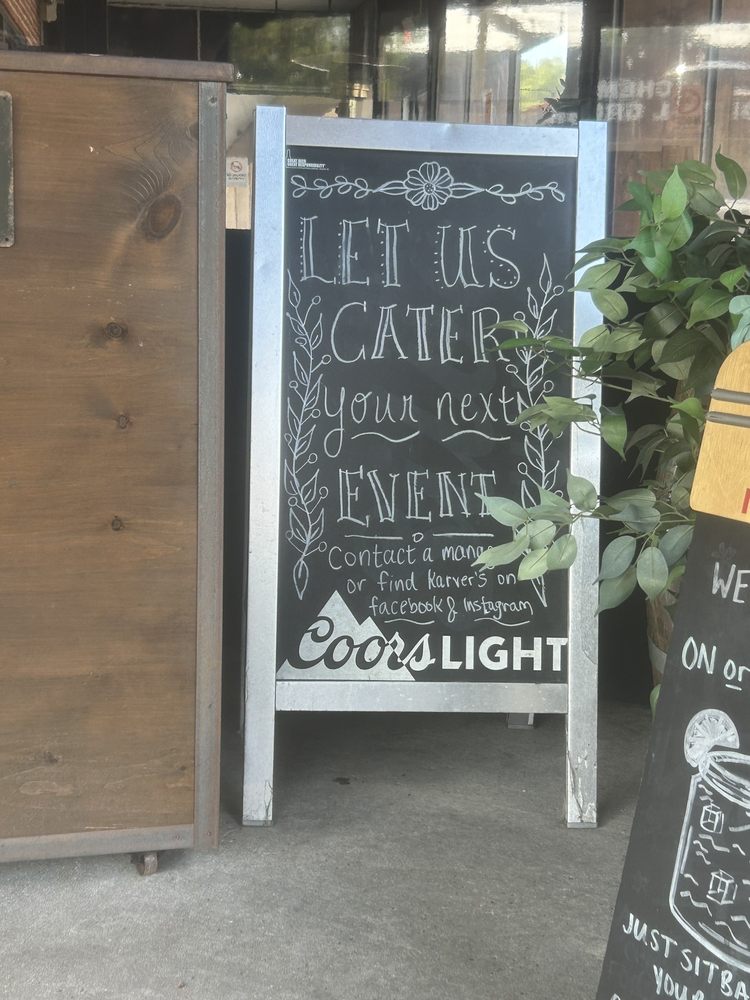 LET US
CATER
your next
EVENT
Contact a
or find Karver's on
facebook & Instagram
Coors LIGHT
WE
ON or
JUST